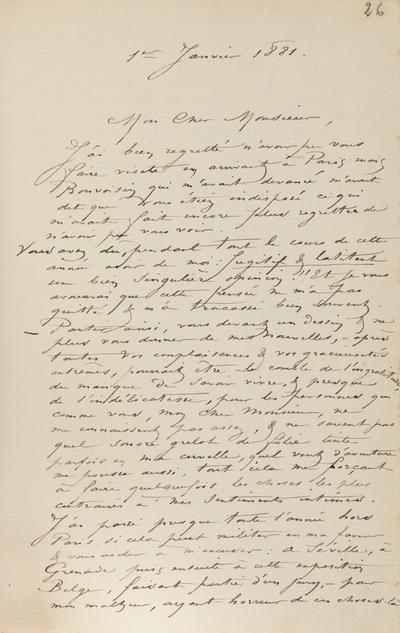 26
1er Janvier 1881.
Mon Cher Monsieur,
J'ai bien regretté n'avoir pu vous
faire visite en arrivant à Paris, mais
Bonvoisin qui m'avait devancé m'avait
dit que vous étiez indisposé ce qui
m'avait fait encore plus regretter de
n'avoir pu vous voir.
Vous avez dû, pendant tout le cours de cette
année avoir de moi: fugitif & latitent
une bien singulière opinion!! Et je vous
avouerai que cette pensée ne m'a pas
quitté & m'a tracassé bien souvent.
– Partir ainsi, vous devant un dessin & ne
plus vous donner de mes nouvelles, – après
toutes vos complaisances & vos gracieusetés
extrêmes, pourrait être le comble de l'ingratitude,
du manque de savoir vivre, & presque
de l'indélicatesse, pour les personnes qui
comme vous, mon cher Monsieur, ne
me connaissent pas assez, & ne savent pas
quel sonore grelot de folie tinte
parfois en ma cervelle, quel vent d'aventure
me pousse aussi, tout cela me forçant
à faire quelquefois les choses les plus
contraires à mes sentiments intimes.
J'ai passé presque toute l'année hors
Paris, si cela peut militer en ma faveur
& vous aider à m'excuser: à Séville, à
Grenade puis ensuite à cette exposition
Belge, faisant partie d'un jury, – pour
mon malheur, ayant horreur de ces choses-là